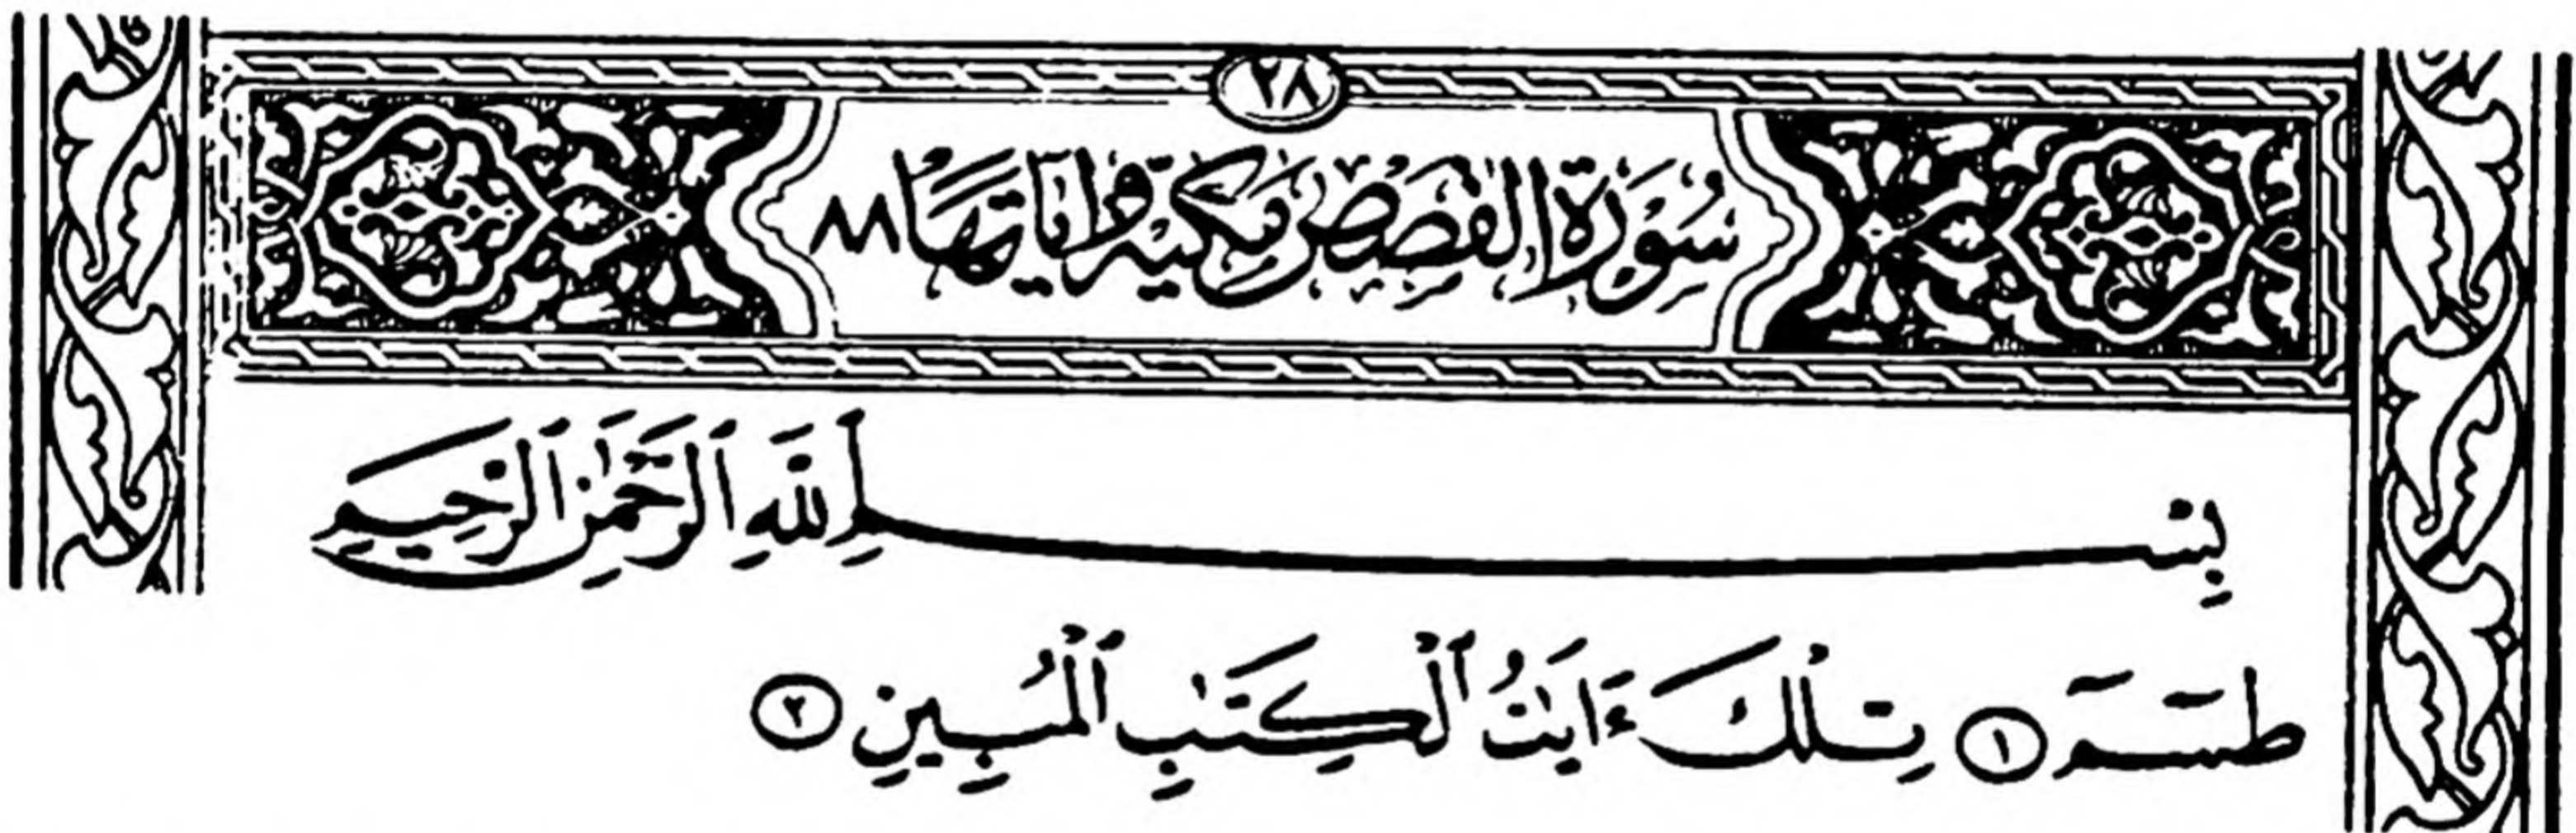 ٢٨
سُورَةُ الْقَصَصِ مَكِّيَّةٌ وَآيَاتُهَا ٨٨
بِسْمِ اللَّهِ الرَّحْمَٰنِ الرَّحِيمِ
طسٓمٓ ١ تِلْكَ ءَايَٰتُ ٱلْكِتَٰبِ ٱلْمُبِينِ ٢